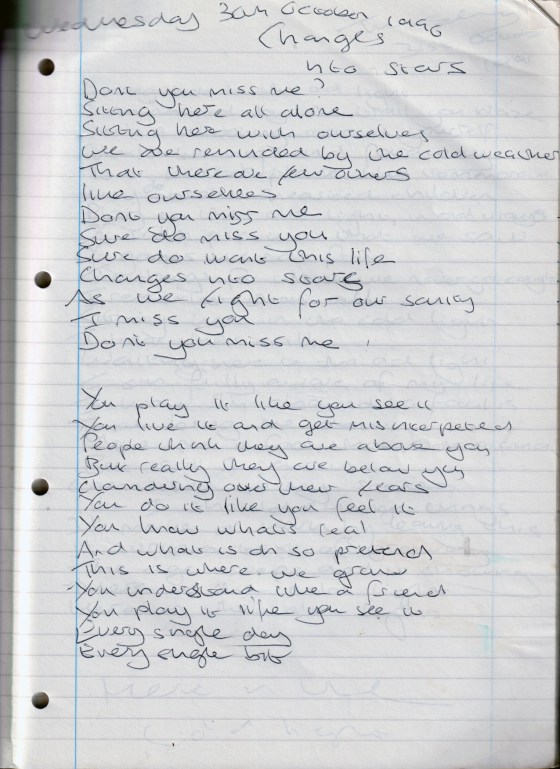 Wednesday 30th October 1996
Changes
into stars
Dont you miss me?
Sitting here all alone
Sitting here with ourselves
We are reminded by the cold weather
That there are few others
like ourselves
Dont you miss me
Sure do miss you
Sure do want this life
Changes into stars
As we fight for our sanity
I miss you
Dont you miss me !
You play it like you see it
You live it and get misinterpeted
People think they are above you
But really they are below you
Clambering over their fears
You do it like you feel it
You know whats real
And whats is oh so pretend
This is where we grow
You understand like a friend
You play it like you see it
Every single day
Every single bit